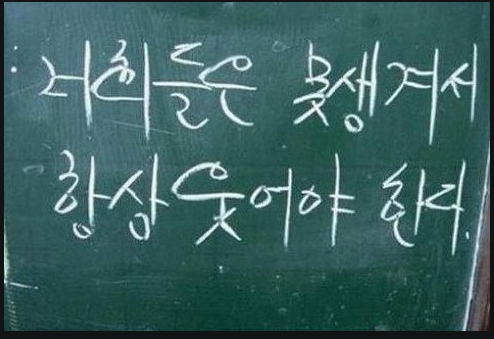 너희들은 못생겨서
항상 웃어야 한다.